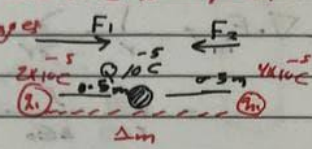 F₁ F₂
2×10⁻⁵C Q 10⁻⁵C 4×10⁻⁵C
q₁ 0.5m 0.5m q₂
Δm